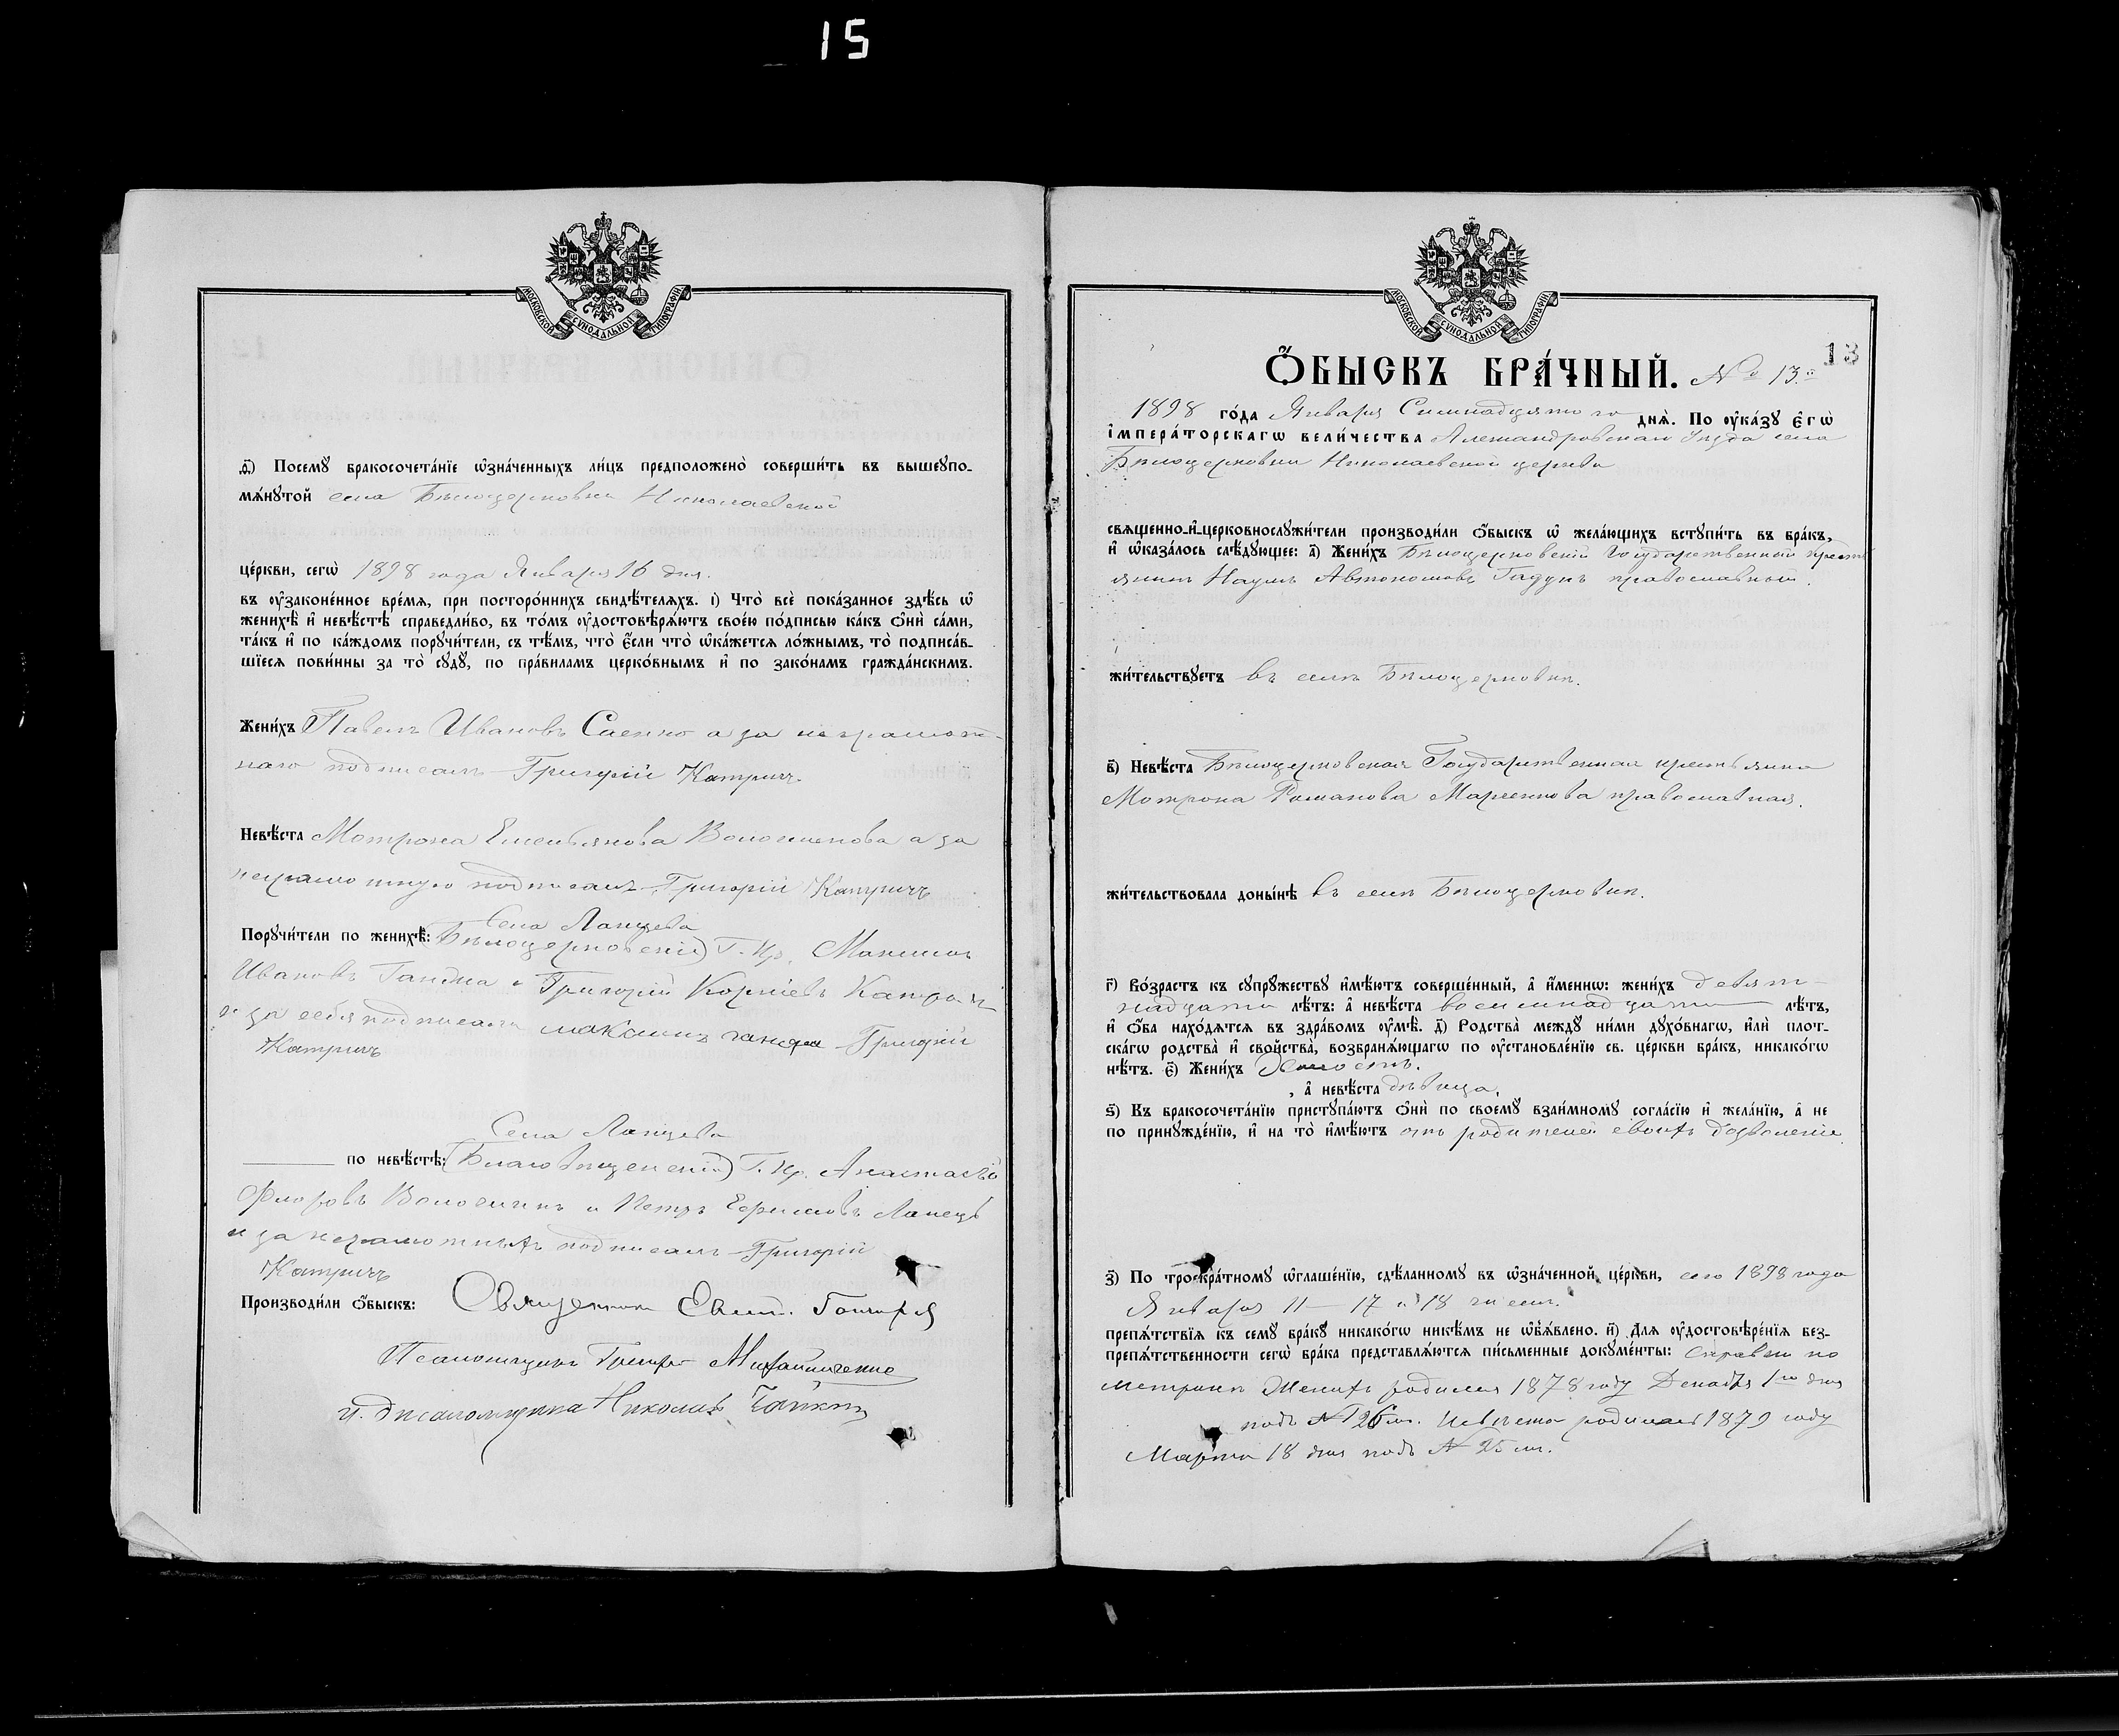 15
МОСКОВСКОЙ СУНОДАЛЬНОЙ ТИПОГРАФІИ
д҃і) Посемꙋ бракосочета́нїе ѡ҆зна́ченныхъ ли́цъ предположено̀ соверши́ть въ вышеꙋпо-
мѧ́нꙋтой села Бѣлоцерковки Николаевской
це́ркви, сегѡ̀ 1898 года Января 16 дня.
въ ᲂу҆зако́ненное вре́мѧ, при посторо́ннихъ свидѣ́телѧхъ. і҃) Что̀ всѐ пока́занное здѣ́сь ѡ҆
женихѣ̀ и҆ невѣ́стѣ справедли́во, въ то́мъ ᲂу҆достовѣрѧ́ютъ свое́ю по́дписью ка́къ ѻ҆нѝ са́ми,
та́къ и҆ по ка́ждомъ порꙋчи́тели, съ тѣ́мъ, что̀ є҆́сли что̀ ѡ҆ка́жетсѧ ло́жнымъ, то̀ подписа́в-
шїесѧ пови́нны за то̀ сꙋдꙋ̀, по пра́виламъ церко́внымъ и҆ по зако́намъ гражда́нскимъ.
Жени́хъ Павелъ Ивановъ Саенко а за неграмот-
наго подписалъ Григорій Катричъ.
Невѣ́ста Мотрона Емельянова Волошинова а за
неграмотную подписалъ Григорій Катричъ
Села Ланцева
Порꙋчи́тели по женихѣ̀: (Бѣлоцерковскій) Г. Кр. Максимъ
Ивановъ Гандма и Григорій Корніевъ Катричъ
и за себя подписали максимъ Григорій
Катричъ
Села Ланцева
по невѣ́стѣ: (Благовѣщенскій) Г. Кр. Анастасій
Флоровъ Волошинъ и Петръ Ефимовъ Ланецъ
и за неграмотныхъ подписалъ Григорій
Катричъ
Производи́ли ѻ҆́быскъ: Священникъ Евит. Гончаровъ
Псаломщикъ Григор. Михайличенко
и. д. псаломщика Николай
МОСКОВСКОЙ СУНОДАЛЬНОЙ ТИПОГРАФІИ
13
Ѻ҆́БЫСКЪ БРА́ЧНЫЙ. № 13.й
1898 го́да Января Семнадцятого днѧ̀. По ᲂу҆ка́зꙋ є҆гѡ̀
і҆мпера́торскагѡ вели́чества Александровскаго Уѣзда села
Бѣлоцерковки Николаевской церкви
свѧще́нно-и҆-церковнослꙋжи́тели производи́ли ѻ҆́быскъ ѡ҆ жела́ющихъ встꙋпи́ть въ бра́къ,
и҆ ѡ҆каза́лось слѣ́дꙋющее: а҃) Жени́хъ Бѣлоцерковскій Государственный крест
янинъ Наумъ Автономовъ Гадунъ православный.
жи́тельствꙋетъ въ селѣ Бѣлоцерковкѣ.
в҃) Невѣ́ста Бѣлоцерковская Государственная крестьянка
Мотрона Романова Марченкова православная.
жи́тельствовала доны́нѣ въ селѣ Бѣлоцерковкѣ.
г҃) Во́зрастъ къ сꙋпрꙋ́жествꙋ и҆мѣ́ютъ соверше́нный, а҆ и҆́меннѡ: жени́хъ девят-
надцати лѣ́тъ: а҆ невѣ́ста восемнадцати лѣ́тъ,
и҆ ѻ҆́ба нахо́дѧтсѧ въ здра́вомъ ᲂу҆мѣ̀. д҃) Родства̀ междꙋ̀ ни́ми дꙋхо́внагѡ, и҆лѝ плот-
ска́гѡ родства̀ и҆ сво́йства, возбранѧ́ющагѡ по ᲂу҆становле́нїю св. це́ркви бра́къ, никако́гѡ
нѣ́тъ. є҃) Жени́хъ Холостъ.
, а҆ невѣ́ста дѣвица.
ѕ҃) Къ бракосочета́нїю пристꙋпа́ютъ ѻ҆нѝ по своемꙋ̀ взаи́мномꙋ согла́сїю и҆ жела́нїю, а҆ не
по принꙋжде́нїю, и҆ на то̀ и҆мѣ́ютъ отъ родителей своихъ дозволеніе
з҃) По троекра́тномꙋ ѡ҆глаше́нїю, сдѣ́ланномꙋ въ ѡ҆зна́ченной це́ркви, сего 1898 года
Января 11 – 17 и 18 чисел.
препѧ́тствїѧ къ семꙋ̀ бра́кꙋ никако́гѡ никѣ́мъ не ѡ҆б̾ѧ́влено. и҃) Длѧ̀ ᲂу҆достовѣре́нїѧ без-
препѧ́тственности сегѡ̀ бра́ка представлѧ́ютсѧ пи́сьменные докꙋме́нты: справки по
метрикѣ Женихъ родился 1878 году Декабря 1го дня
подъ № 126 м. невѣста родилась 1879 году
Марта 18 дня подъ № 25 ж.